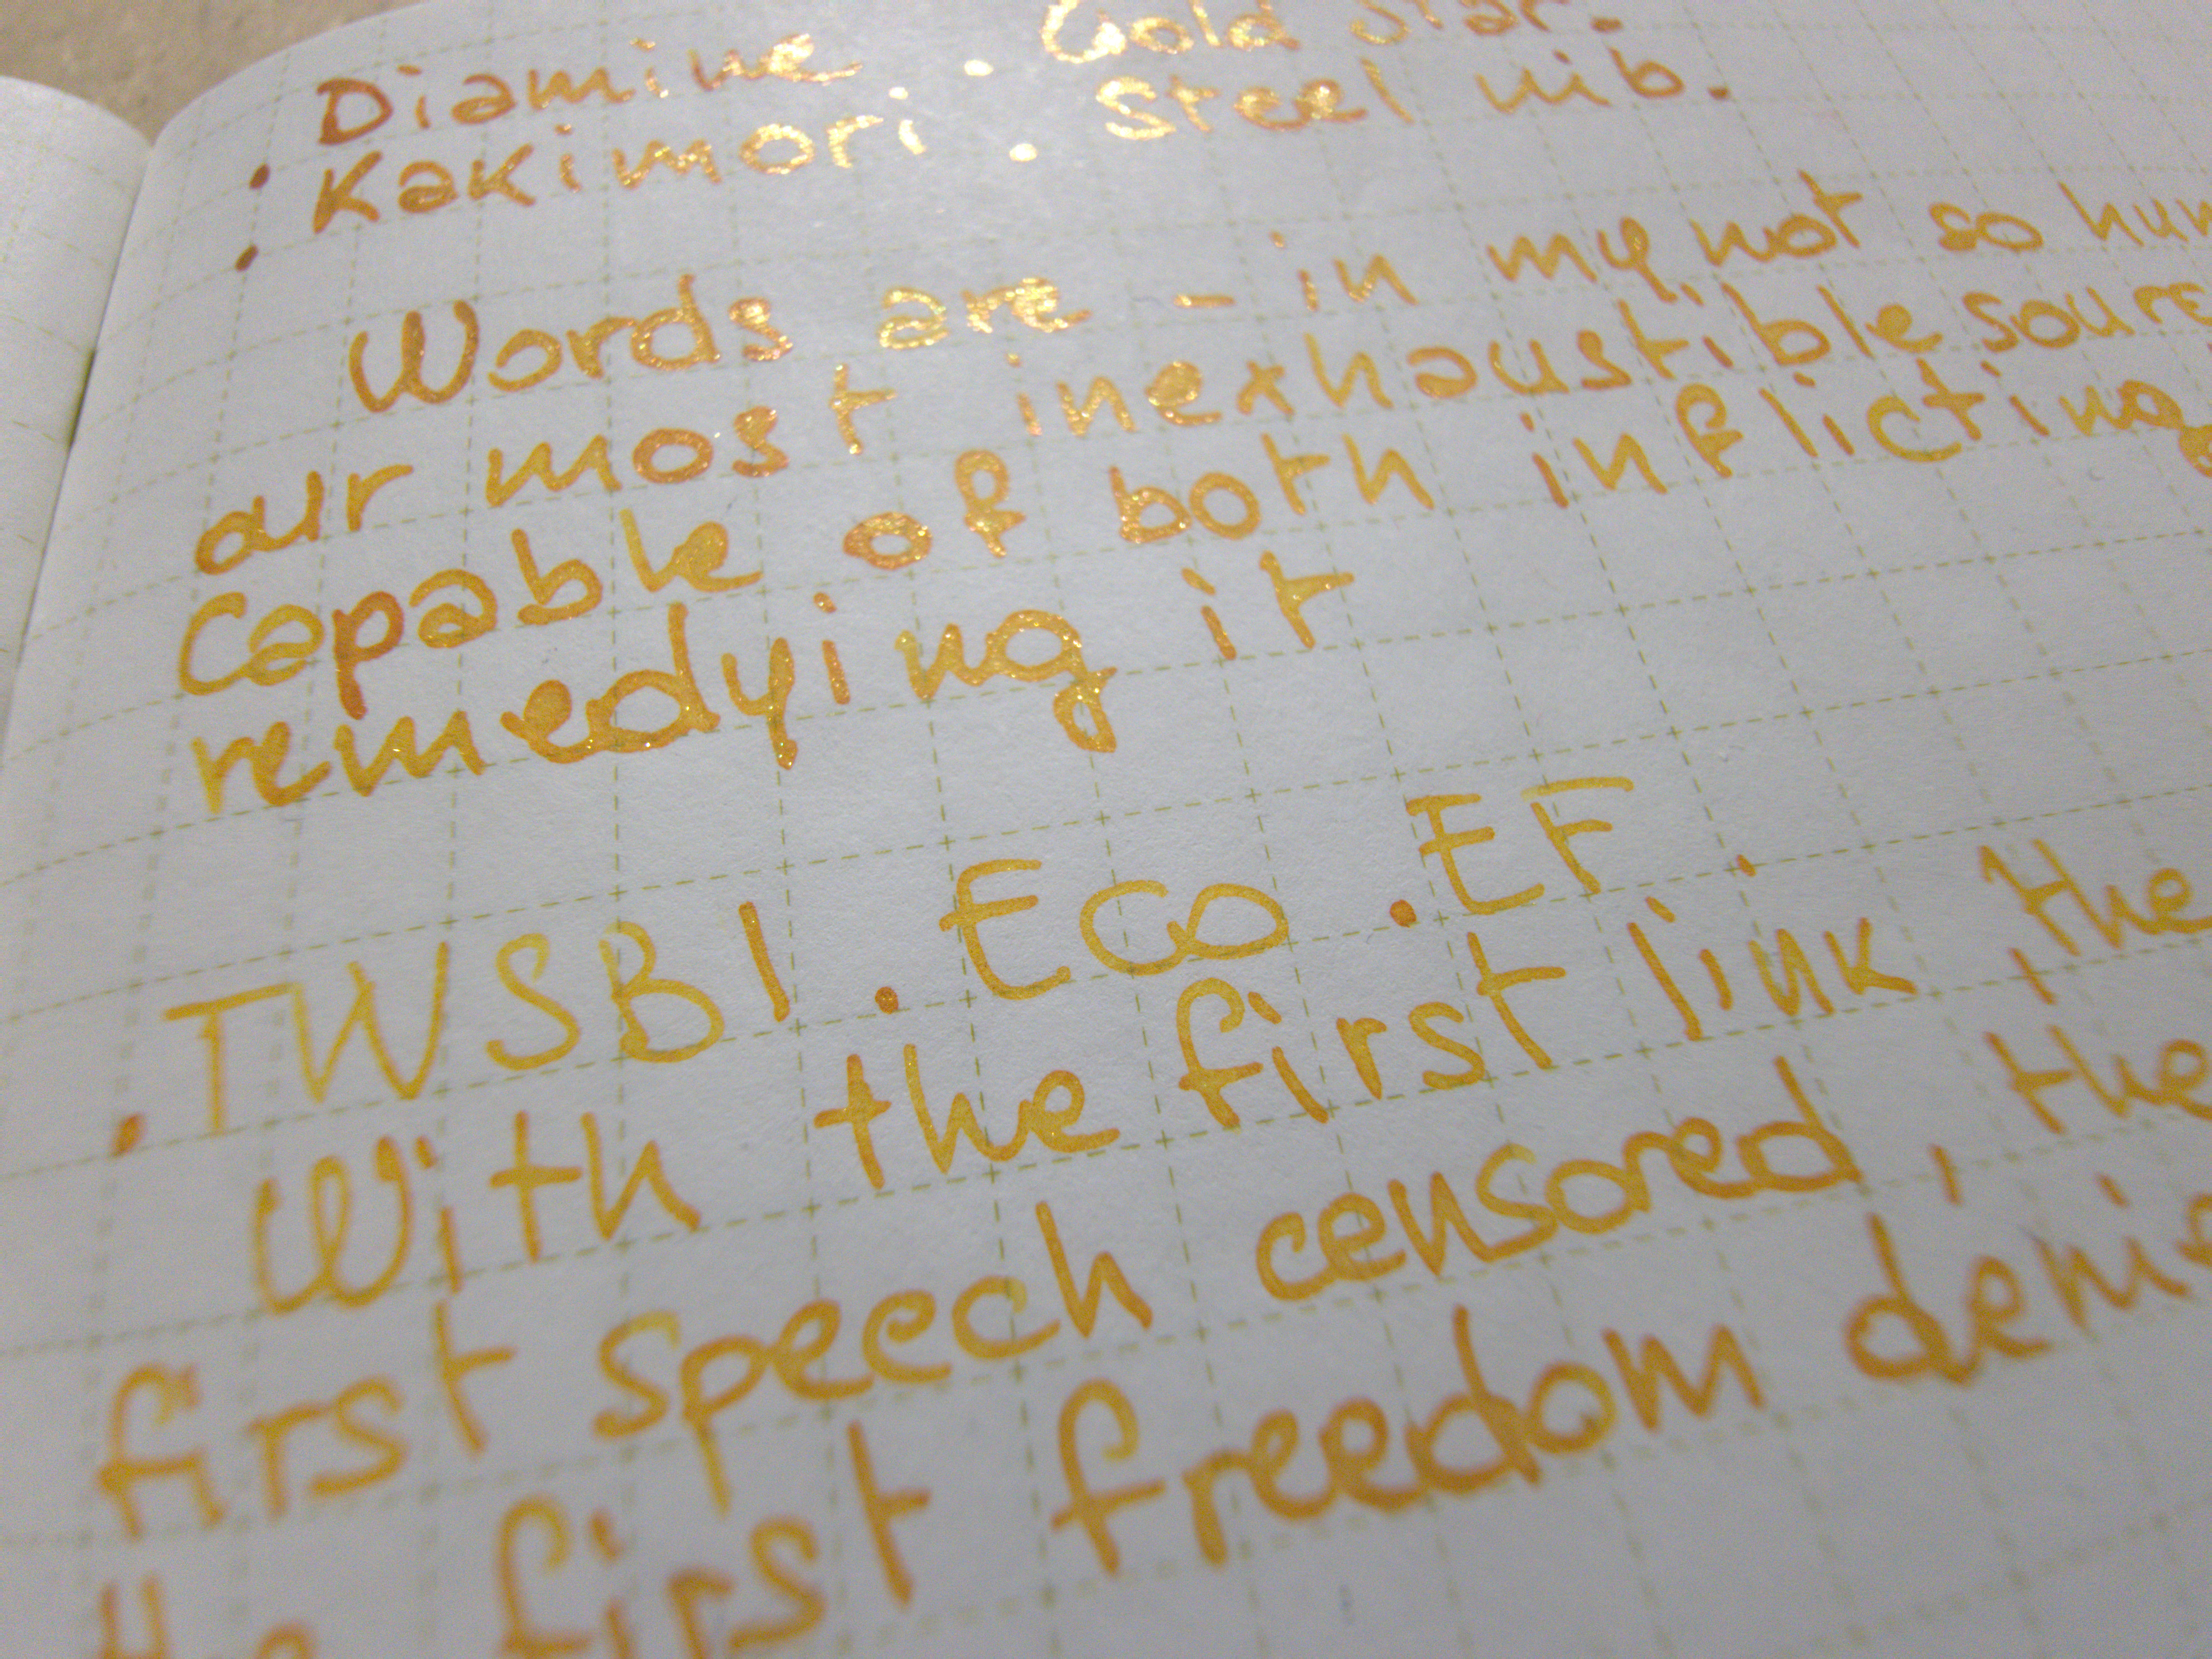 Diamine . Gold Star.
. Kakimori . Steel nib.
.
Words are - in my not so hum
our most inexhaustible sourc
capable of both inflicting
remedying it
. TWSBI . Eco . EF
With the first link, the
first speech censored, the
the first freedom denie